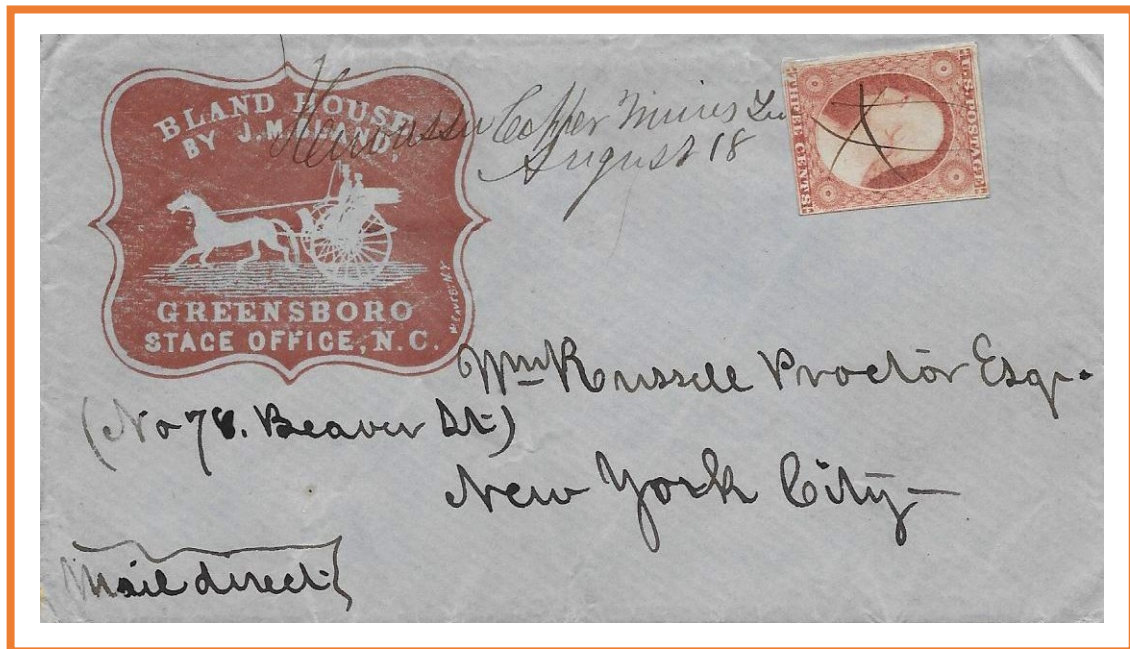 BLAND HOUSE,
BY J.M.
GREENSBORO
STAGE OFFICE, N.C.
Hiwassee Copper Mines
August 18
U.S. POSTAGE
THREE CENTS
Wm Russell Proctor Esqr.
(No 78. Beaver St.)
New York City
Mail direct